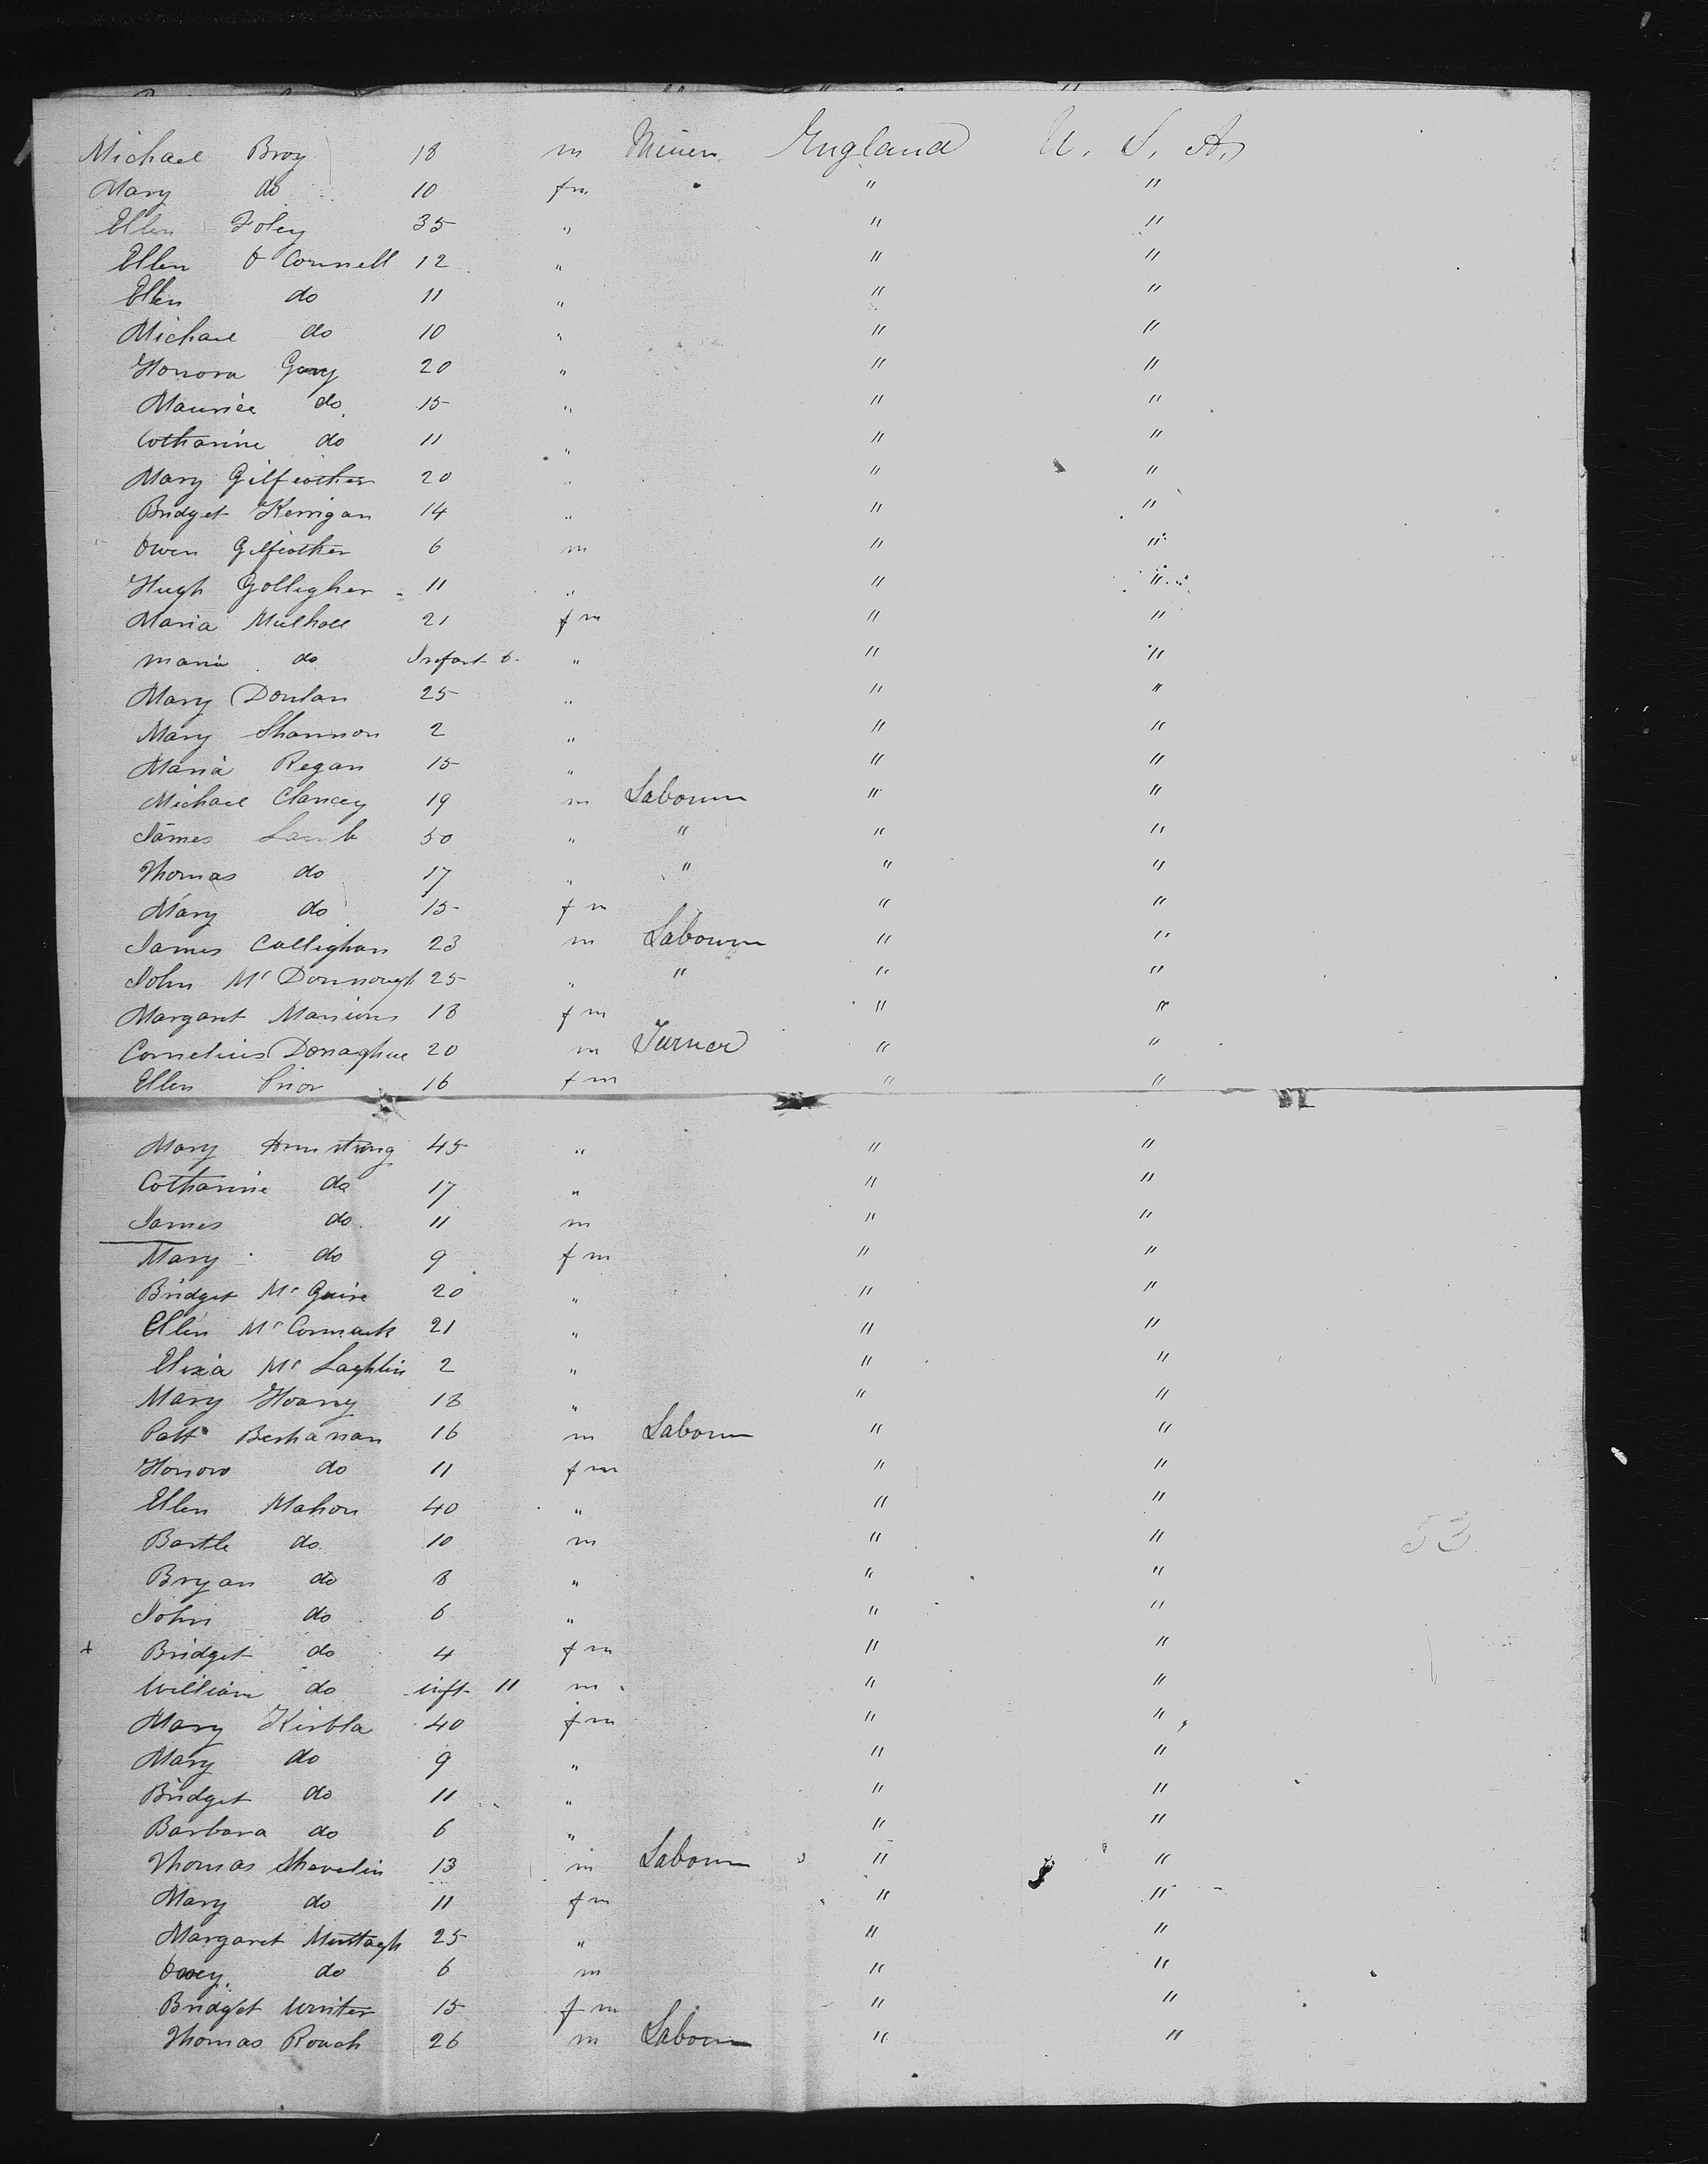 Michael Broy 18 m Miner England U. S. A.
Mary do 10 fm " "
Ellen Foley 35 " " "
Ellen O Connell 12 " " "
Ellen do 11 " " "
Michael do 10 " " "
Honora Gary 20 " " "
Maurice do 15 " " "
Catharine do 11 " " "
Mary Gilfeather 20 " " "
Bridget Kerrigan 14 " " "
Owen Gilfeather 6 m " "
Hugh Golligher 11 " " "
Maria Mulhall 21 fm " "
Maria do Infant 6 " " "
Mary Donlan 25 " " "
Mary Shannon 2 " " "
Maria Regan 15 " " "
Michael Clancey 19 m Labourer " "
James Lamb 50 " " " "
Thomas do 17 " " " "
Mary do 15 fm " "
James Callighan 23 m Labourer " "
John Mc Donnough 25 " " " "
Margaret Manions 18 fm " "
Cornelius Donaghue 20 m Turner " "
Ellen Prior 16 fm " "
Mary Armstrong 45 " " "
Catharine do 17 " " "
James do 11 m " "
Mary do 9 fm " "
Bridget Mc Guire 20 " " "
Ellen Mc Cormack 21 " " "
Eliza Mc Laghlin 2 " " "
Mary Hoary 18 " " "
Patk 16 m Labourer " "
Honora do 11 fm " "
Ellen Mahon 40 " " "
Bartle do 10 m " "
Bryan do 8 " " "
John do 6 " " "
+ Bridget do 4 fm " "
William do inft 11 m " "
Mary Kirbla 40 fm " "
Mary do 9 " " "
Bridget do 11 " " "
Barbara do 6 " " "
Thomas Shevelin 13 m Labourer " "
Mary do 11 fm " "
Margaret Murtagh 25 " " "
do 6 m " "
Bridget Winter 15 fm " "
Thomas Roach 26 m Labourer " "
53